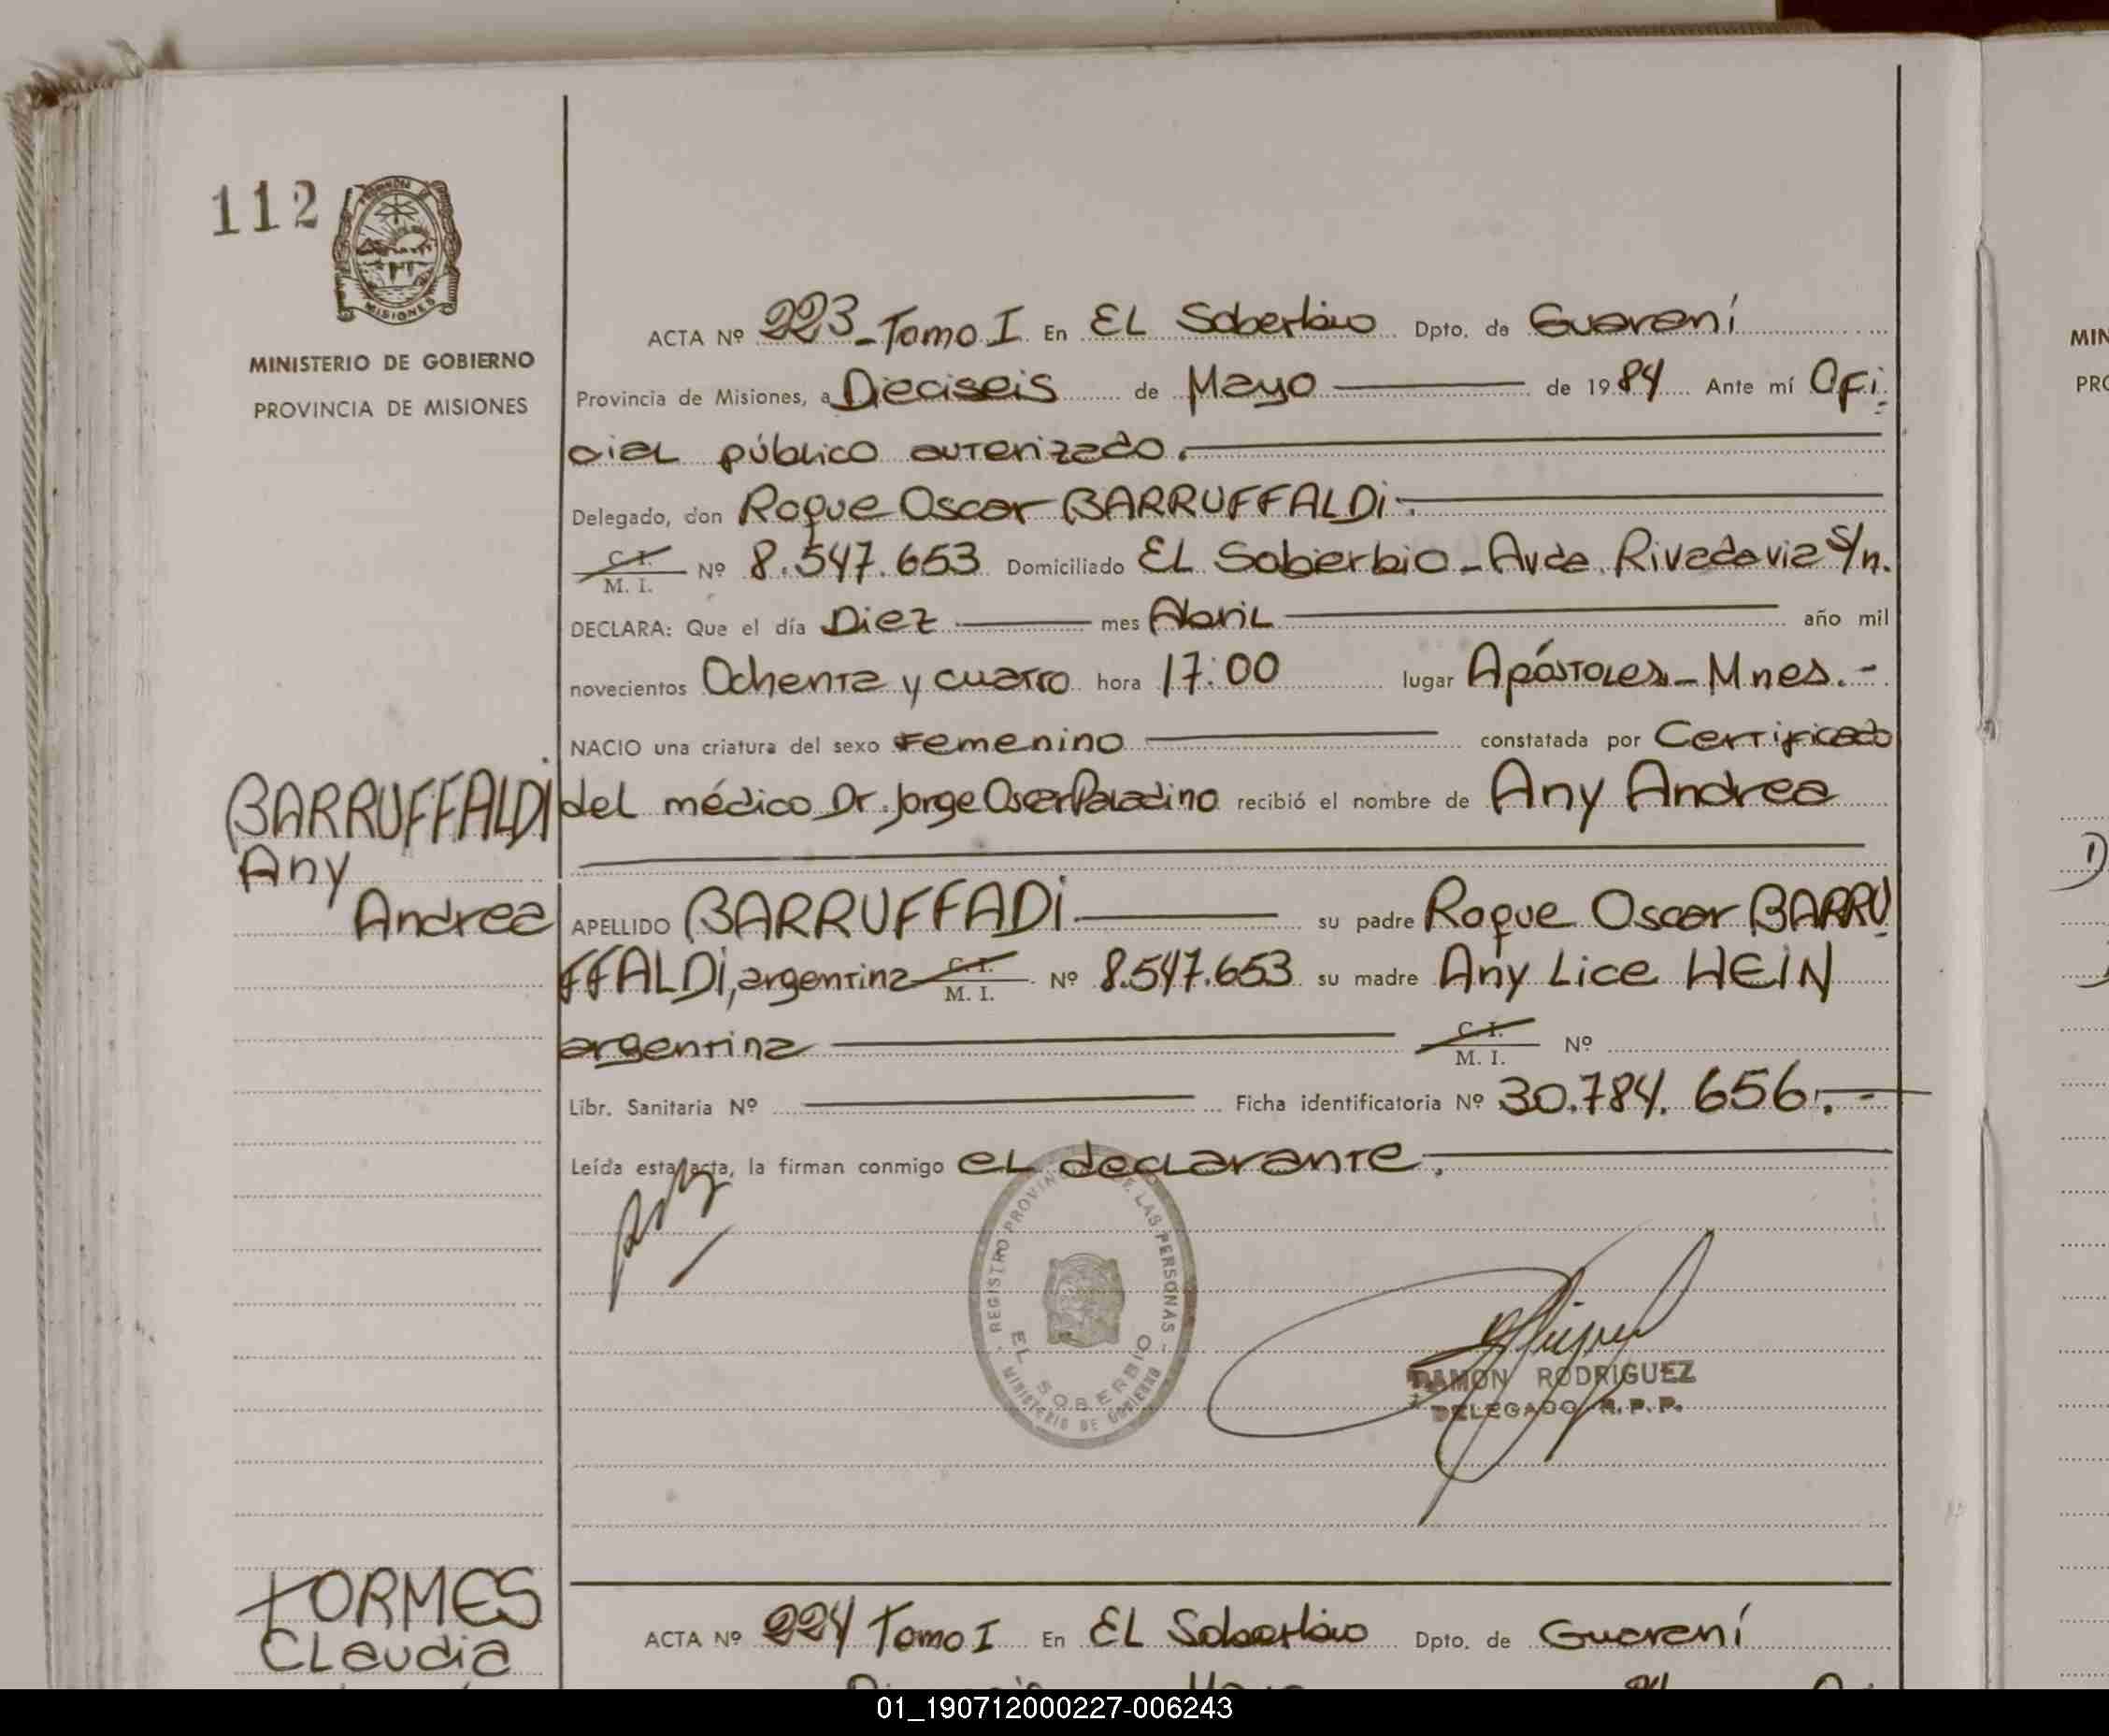 112
PROVINCIA DE
MISIONES
MINISTERIO DE GOBIERNO
PROVINCIA DE MISIONES
ACTA Nº 223 - Tomo I En EL Soberbio Dpto. de Guaraní
Provincia de Misiones, a Dieciseis de Mayo de 1984 Ante mí Ofi-
cial público autorizado.
Delegado, don Roque Oscar BARRUFFALDI.
C. I.
M. I. Nº 8.547.653 Domiciliado EL Soberbio - Avda. Rivadavia S/n.
DECLARA: Que el día Diez mes Abril año mil
novecientos Ochenta y cuatro hora 17:00 lugar Apóstoles - Mnes.-
NACIO una criatura del sexo Femenino constatada por Certificado
BARRUFFALDI
Any
Andrea
del médico Dr. Jorge Oscar Paladino recibió el nombre de Any Andrea
APELLIDO BARRUFFADI su padre Roque Oscar BARRU-
FFALDI, argentina C. I.
M. I. Nº 8.547.653 su madre Any Lice HEIN
argentina C. I.
M. I. Nº
Libr. Sanitaria Nº Ficha identificatoria Nº 30.784.656.-
Leída esta acta, la firman conmigo eL decLarante.
REGISTRO PROVINCIAL DE LAS PERSONAS
EL SOBERBIO
MINISTERIO DE GOBIERNO
RAMON RODRIGUEZ
DELEGADO R. P. P.
TORMES
CLaudia
ACTA Nº 224 Tomo I En EL Soberbio Dpto. de Guaraní
MIN
PRO
1)
01_190712000227-006243